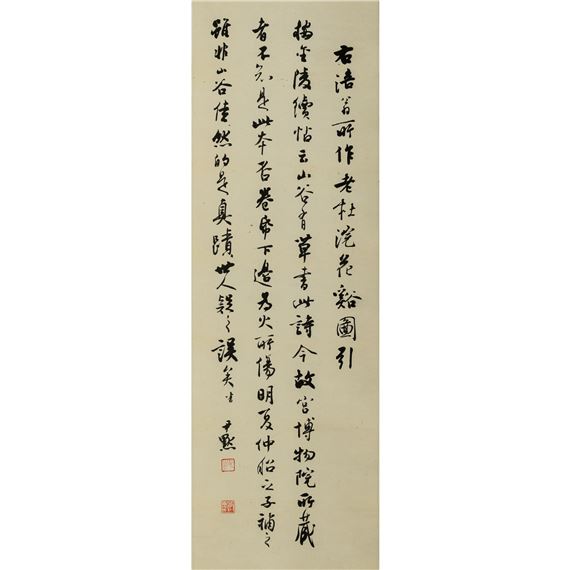 右涪翁所作老杜浣花谿圖引
金陵續帖云山谷有草書此詩今故宮博物院所藏
者不知是此本否卷帋下邊為火所傷明夏仲昭之子補之
雖非山谷佳然的是真蹟世人疑之誤矣
尹默